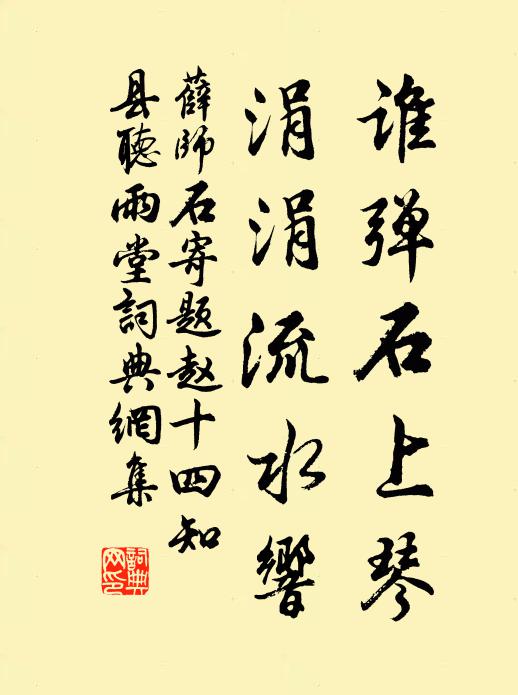 谁弹石上琴
涓涓流水響
薛师石寄题赵十四知
县聽雨堂詞典網集
詞典網印